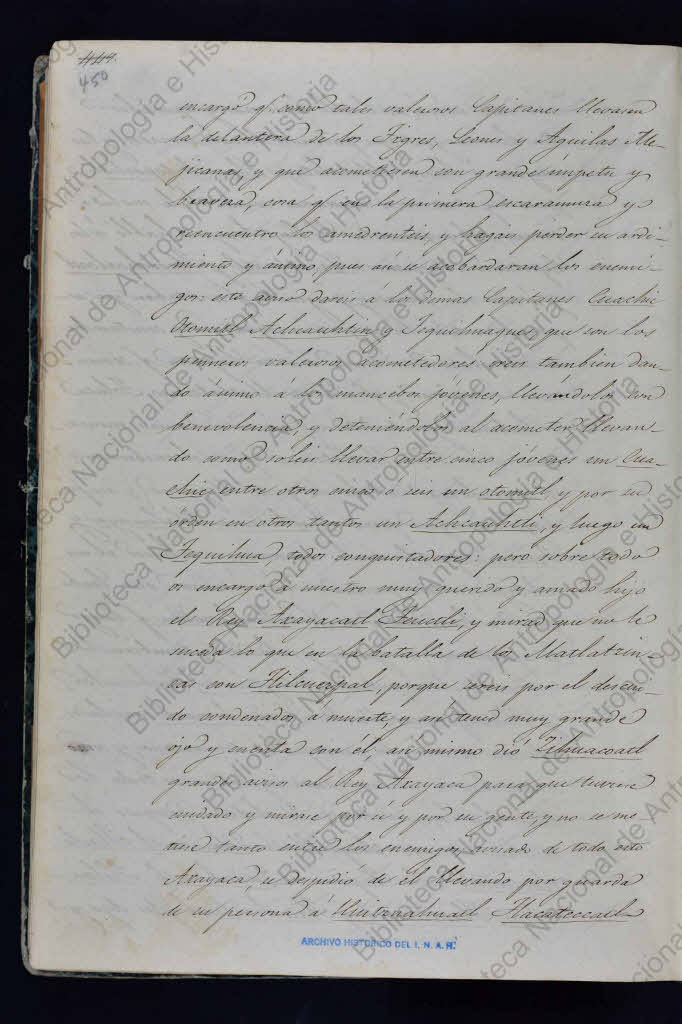 444.
450
encargó q. como tales valerosos Capitanes llevasen
la delantera de los Tigres, Leones y Aguilas Me-
jicanas, y que acometiesen con grande ímpetu y
braveza, cosa q. en la primera escaramuza y
reencuentro los amedrenteis, y hagais perder su ardi-
miento y ánimo, pues asi se acobardaran los enemi-
gos: este aviso dareis á los demas Capitanes Cuachic
Otomitl Achcauhtin y Tequihuaques que con los
primeros valerosos acometedores ireis tambien dan-
do ánimo á los mancebos jóvenes, llevándolos con
benevolencia, y deteniéndolos al acometer llevan-
do como soleis llevar entre cinco jóvenes un Cua-
chic entre otros cinco ó seis un otomitl, y por su
orden en otros tantos un Achcauhtli, y luego un
Tequihua, todos conquistadores: pero sobre todo
os encargo á nuestro muy querido y amado hijo
el Rey Axayacatl Teuctli, y mirad que no le
suceda lo que en la batalla de los Matlatzin-
cas con Tilcuezpal, porque sereis por el descui-
do condenados á muerte, y asi tened muy grande
ojo y cuenta con él, asi mismo dió Zihuacoatl
grandes avisos al Rey Axayaca para que tuviese
cuidado y mirase por sí y por su gente, y no se me-
tiese tanto entre los enemigos, avisado de todo esto
Axayaca, se despidio de el llevando por guarda
de su persona á Huitznahuatl Tlacateccatl
ARCHIVO HISTORICO DEL I. N. A. H.
Biblioteca Nacional de Antropología e Historia